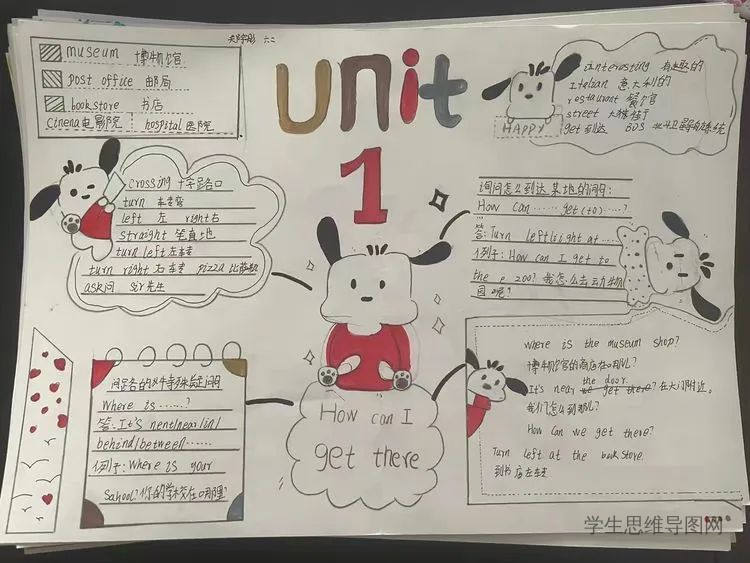 六二
museum 博物馆
post office 邮局
bookstore 书店
Cinena电影院 hospital医院
unit
1
interesting 有趣的
Italian 意大利的
restaurant 餐馆
street 大街
get到达
HAPPY
crossing 十字路口
turn 转弯
left 左 right右
straight 笔直地
turn left左转
turn right右转 pizza 比萨饼
ask问 sir先生
询问怎么到达某地的问句:
How can ...... get(to)......?
答:Turn left/right at ......
例子:How can I get to
the 200? 我怎么去动物
园呢?
问路各的特殊疑问
Where is ......?
答:It's nent/near/in/
behind/between......
例子:Where is your
School?你的学校在哪里?
How can I
get there
Where is the museum shop?
博物馆的商店在哪儿?
It's near the door. 在大门附近。
我们怎么到那儿?
How can we get there?
Turn left at the bookstore.
到书店左转
学生思维导图网